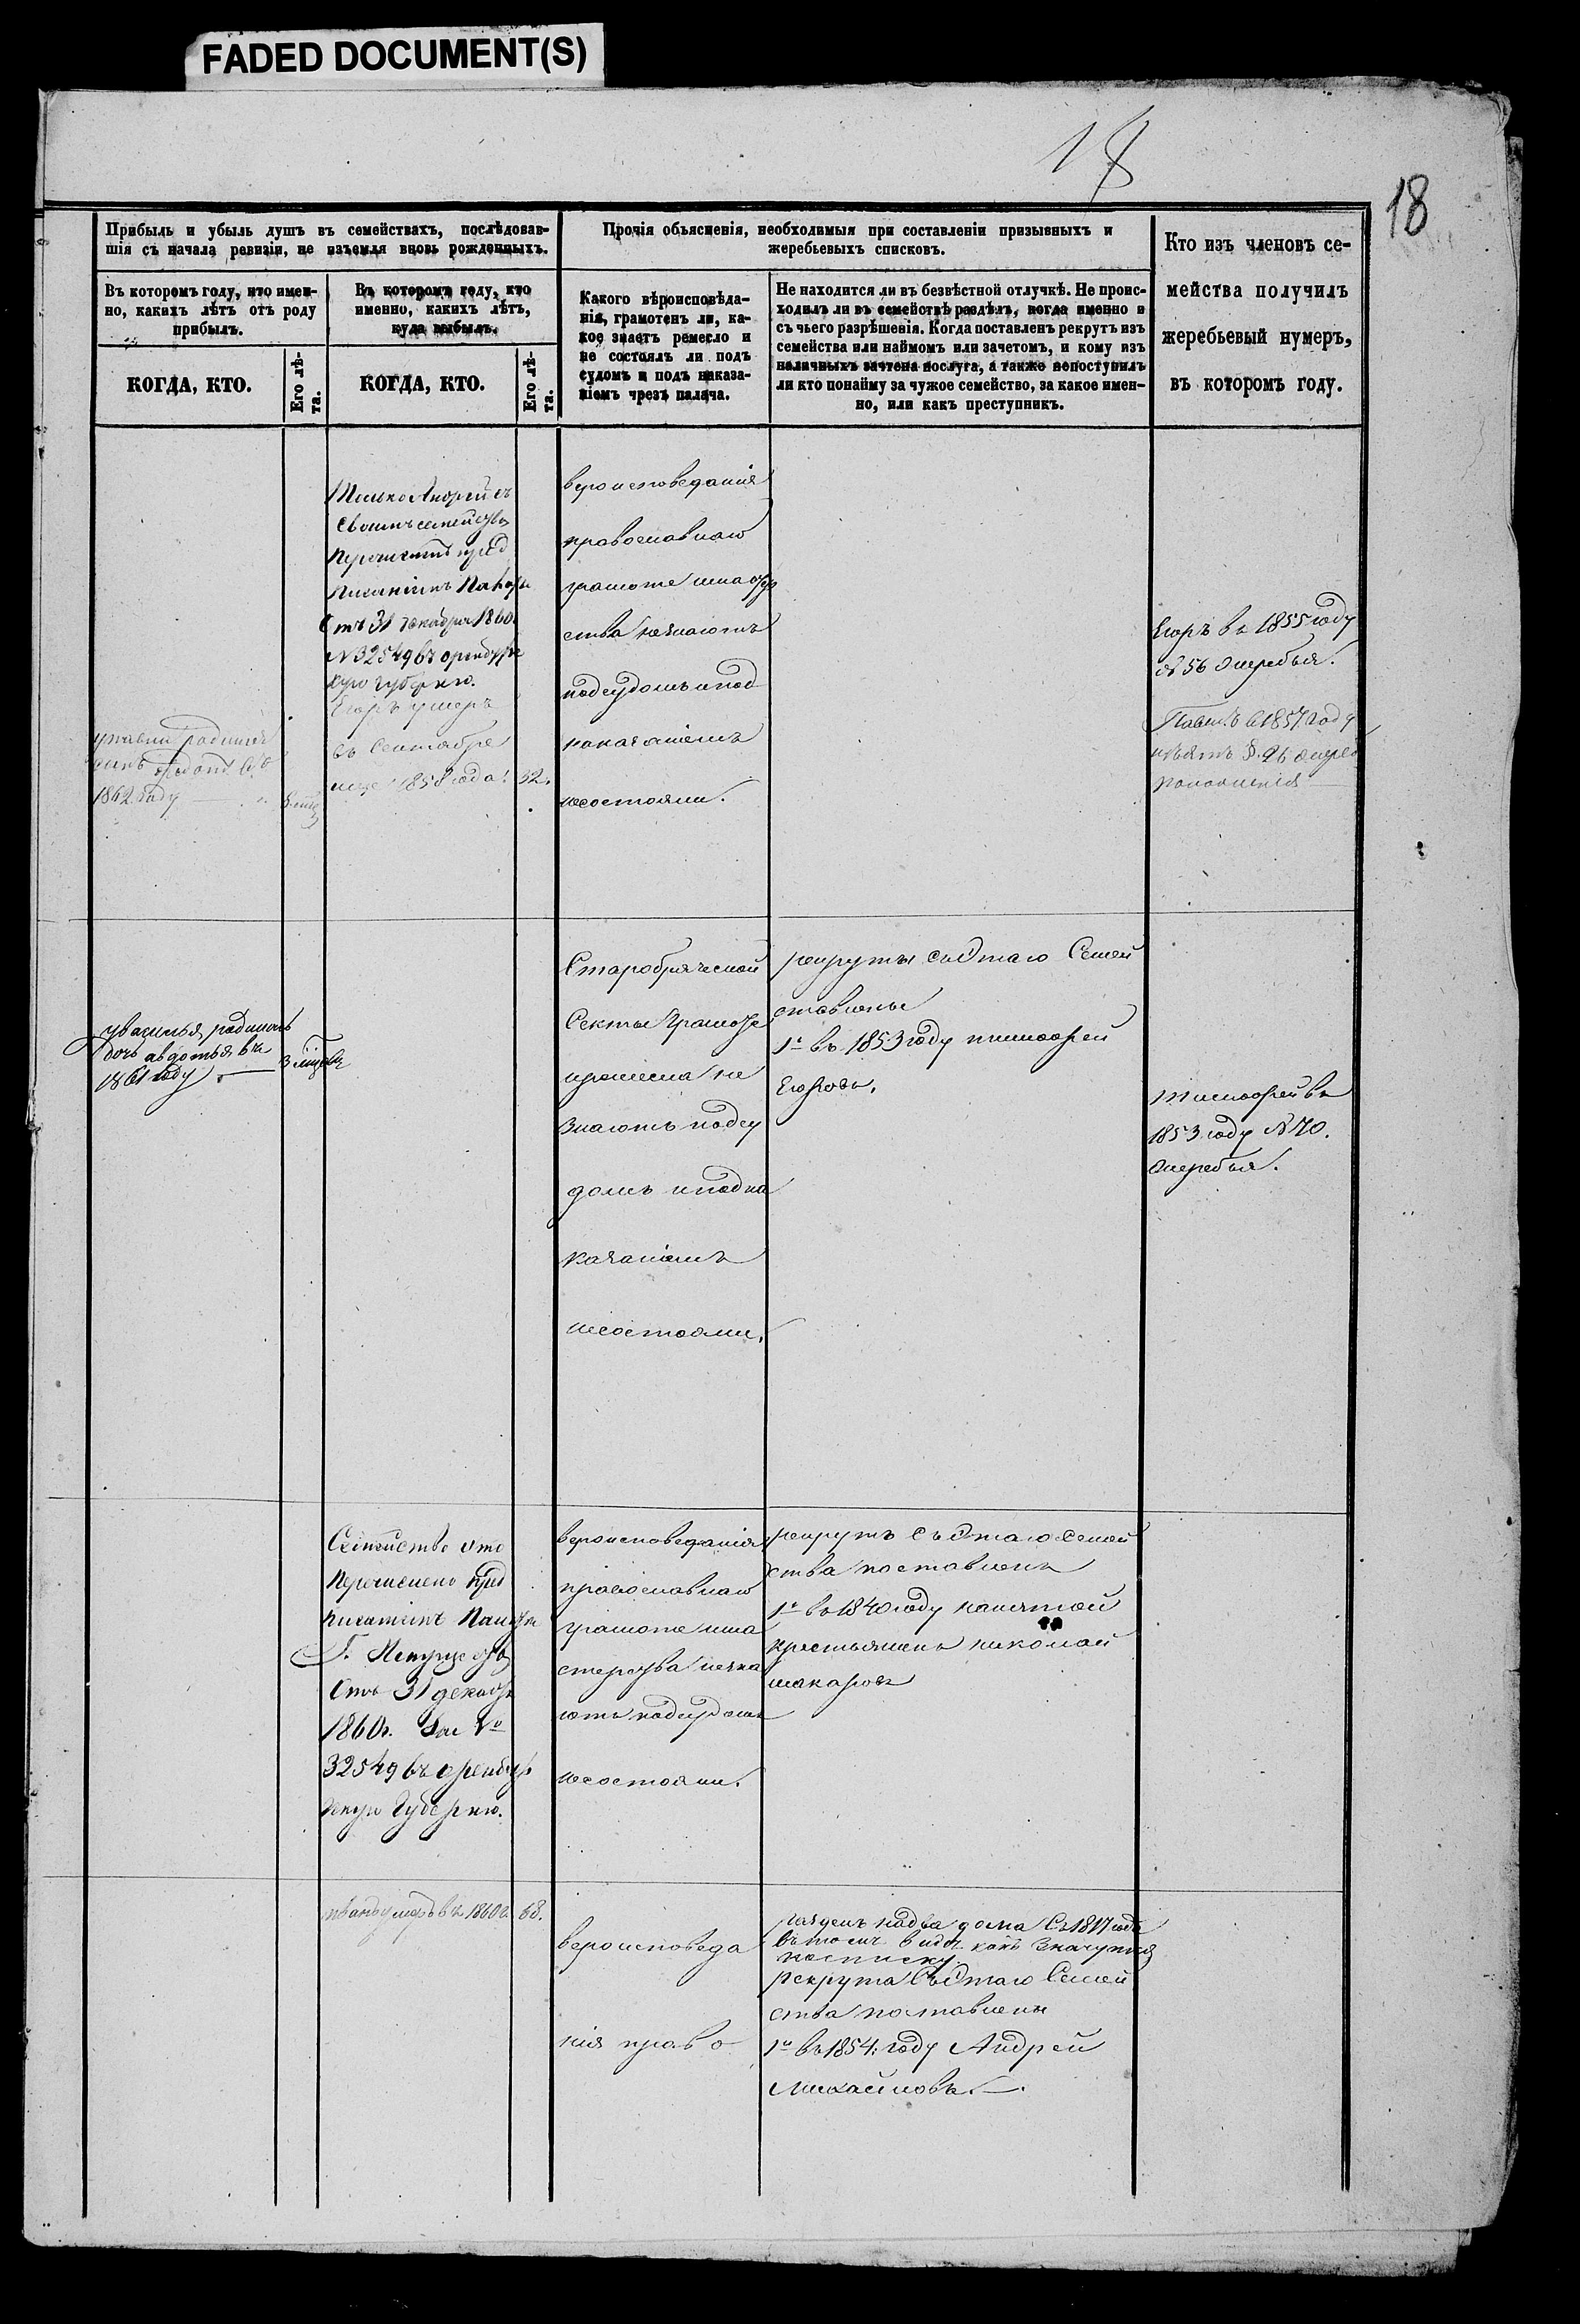 FADED DOCUMENT(S)
18
18
Прибыль и убыль душъ въ семействахъ, послѣдовав-
шія съ начала ревизіи, не изъемля вновь рожденныхъ.
Прочія объясненія, необходимыя при составленіи призывныхъ и
жеребьевыхъ списковъ.
Кто изъ членовъ се-
мейства получилъ
жеребьевый нумеръ,
въ которомъ году.
Въ которомъ году, кто имен-
но, какихъ лѣтъ отъ роду
прибылъ.
Въ которомъ году, кто
именно, какихъ лѣтъ,
куда выбылъ.
Какого вѣроисповѣда-
нія, грамотенъ ли, ка-
кое знаетъ ремесло и
не состоялъ ли подъ
судомъ и подъ наказа-
ніемъ чрезъ палача.
Не находится ли въ безвѣстной отлучкѣ. Не проис-
ходилъ ли въ семействѣ раздѣлъ, когда именно и
съ чьего разрѣшенія. Когда поставленъ рекрутъ изъ
семейства или наймомъ или зачетомъ, и кому изъ
наличныхъ зачтена послуга, а также непоступилъ
ли кто понайму за чужое семейство, за какое имен-
но, или какъ преступникъ.
КОГДА, КТО.
Его лѣ-
та.
КОГДА, КТО.
Его лѣ-
та.
родился
сынъ
1862 году
Только Андрей съ
своимъ семейство
перечислен пред
писаніемъ Палаты
Отъ 31 декабря 1860.
№ 32549 въ оренбург
скую губернію.
Егоръ умеръ
въ Сентябре
1858 года. 32.
вероисповеданія
православнаго
грамоте
ства незнаютъ
подсудомъ и под
наказаніемъ
несостояли.
Егоръ въ 1855 году
№ 56 очередья.
Павелъ в 1857 году
№ 26
увасилья родилась
дочь авдотья въ
1861 году
Старобряческой
Секты Грамоте
иремесла не
знаютъ подсу
домъ и подна
казаніемъ
несостояли.
рекруты съэтаго Семей
ставлены
1е въ 1853 году тимофей
Егоровъ.
тимофей въ
1853 году № 70.
очередья.
Семейство это
Перечислено пред
писаніемъ Палаты
Г. Имуществъ
Отъ 31 декабря
1860г. За №
32549 въ оренбург
скую Губернію.
вероисповеданія
православнаго
грамоте има
стерства незна
ютъ подсудомъ
несостояли.
рекрутъ съэтаго семей
ства поставленъ
1е въ 1840 году нанятой
крестьянинъ николай
макаровъ
иванъ умеръ въ 1860 г. 68.
вероисповеда
нія право
раздель надва дома Съ 1817 года
въ томъ виде какъ значутся
посписку
рекрута Съэтаго Семей
ства поставлены
1е въ 1854: году Андрей
Михайловъ.